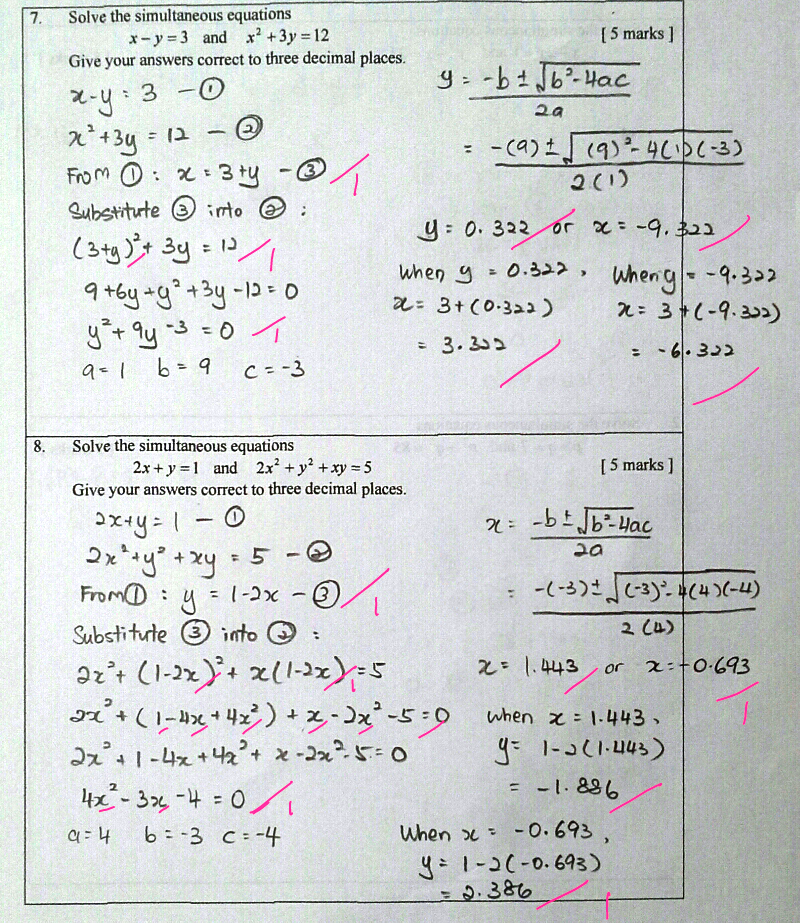 7. Solve the simultaneous equations
x − y = 3 and x² + 3y = 12 [ 5 marks ]
Give your answers correct to three decimal places.
x-y = 3 — ①
x² + 3y = 12 — ②
From ① : x = 3+y — ③ /1
Substitute ③ into ② :
(3+y)² + 3y = 12 /1
9 + 6y + y² + 3y - 12 = 0
y² + 9y - 3 = 0 /1
a = 1 b = 9 c = -3
y = -b ± √b²-4ac
2a
= -(9) ± √(9)² - 4(1)(-3)
2(1)
y = 0.322 or x = -9.322
When y = 0.322 , When y = -9.322
x = 3+(0.322) x = 3+(-9.322)
= 3.322 = -6.322
8. Solve the simultaneous equations
2x + y = 1 and 2x² + y² + xy = 5 [ 5 marks ]
Give your answers correct to three decimal places.
2x+y = 1 — ①
2x²+y² + xy = 5 — ②
From ① : y = 1-2x — ③ /1
Substitute ③ into ② :
2x² + (1-2x)² + x(1-2x) = 5 /1
2x² + (1-4x+4x²) + x - 2x² - 5 = 0
2x² + 1 - 4x + 4x² + x - 2x² - 5 = 0
4x² - 3x - 4 = 0 /1
a = 4 b = -3 c = -4
x = -b ± √b²-4ac
2a
= -(-3) ± √(-3)² - 4(4)(-4)
2(4)
x = 1.443 or x = -0.693
1
when x = 1.443 ,
y = 1-2(1.443)
= -1.886
When x = -0.693 ,
y = 1-2(-0.693)
= 2.386 1